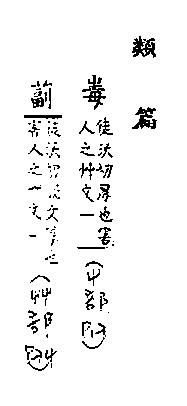 類篇
毒
徒沃切厚也害
人之艸文一
(屮部
徒沃切說文害也
害人之艸文一
(艸部